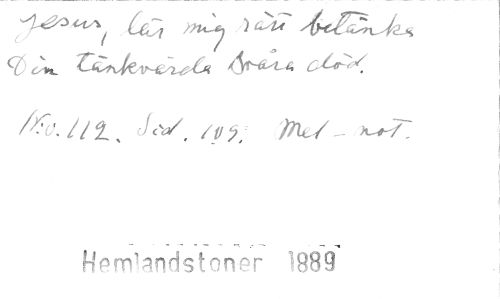 Jesus, lär mig rätt betänka
Din tänkvärda svåra död.
No. 112. Sid. 109. Mel-not.
Hemlandstoner 1889